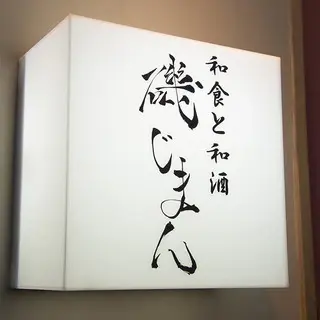 和食と和酒
磯じまん